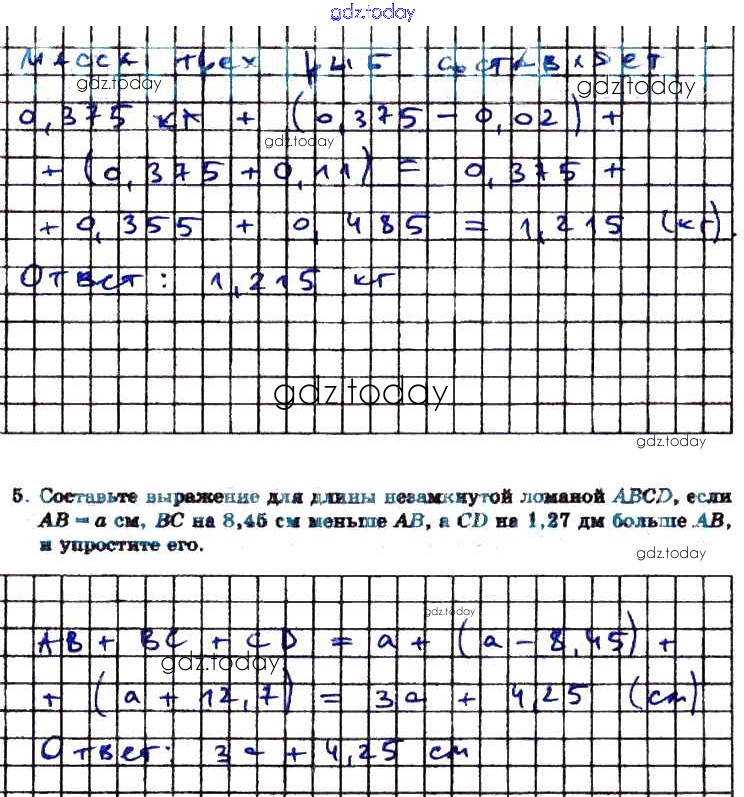 gdz.today
Масса трех книг составляет
gdz.today
gdz.today
0,375 кг + (0,375 - 0,02) +
gdz.today
+ (0,375 + 0,11) = 0,375 +
+ 0,355 + 0,485 = 1,215 (кг).
Ответ: 1,215 кг
gdz.today
gdz.today
5. Составьте выражение для длины незамкнутой ломаной ABCD, если
AB = a см, BC на 8,45 см меньше AB, а CD на 1,27 дм больше AB,
и упростите его.
gdz.today
gdz.today
AB + BC + CD = a + (a - 8,45) +
gdz.today
+ (a + 12,7) = 3a + 4,25 (см)
Ответ: 3a + 4,25 см